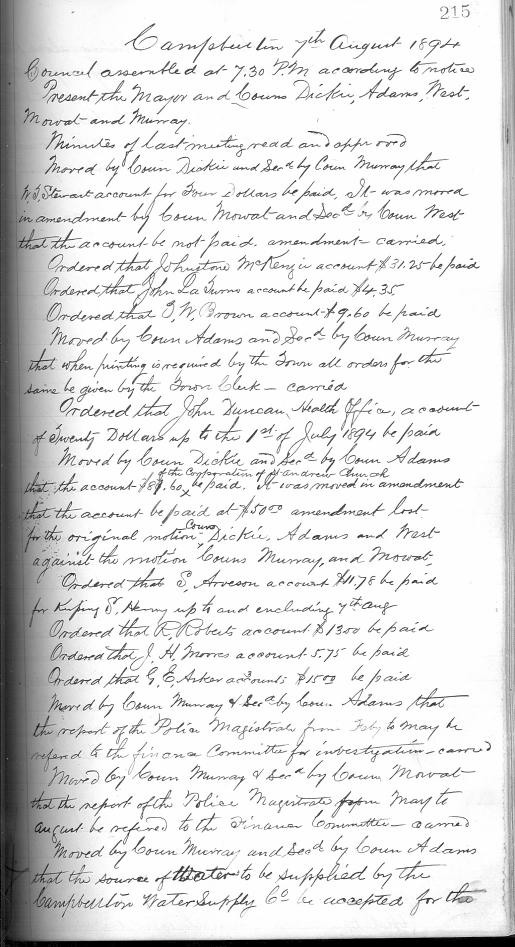 215
Campbellton 7th August 1894
Council assembled at 7.30 P.M according to notice
Present the Mayor and Couns Dickie, Adams, West,
Mowat and Murray.
Minutes of last meeting read and approved
Moved by Coun Dickie and Secd by Coun Murray that
W.J. Stewart account for Four Dollars be paid, It was moved
in amendment by Coun Mowat and Secd by Coun West
that the account be not paid. amendment - carried.
Ordered that Johnstone McKenzie account $31.25 be paid
Ordered that John La account be paid $4.35
Ordered that G, W, Brown account $9.60 be paid
Moved by Coun Adams and Secd by Coun Murray
that when printing is required by the Town all orders for the
same be given by the Town Clerk - carried
Ordered that John Duncan, Health Office, account
of Twenty Dollars up to the 1st of July 1894 be paid
Moved by Coun Dickie and Secd by Coun Adams
of the Corporation of St Andrew Church
that the account $81.60 be paid. It was moved in amendment
that the account be paid at $50.00 amendment lost
for the original motion Couns Dickie, Adams and West
against the motion Couns Murray, and Mowat,
Ordered that E, Arveson account $11.78 be paid
for Keeping S, Henry up to and including 7th Aug
Ordered that R, Roberts account $13.00 be paid
Ordered that J. H, Morres account 5.75 be paid
Ordered that G, E, Asker accounts $15.00 be paid
Moved by Coun Murray & Secd by Coun Adams that
the report of the Police Magistrate from Feby to May be
refered to the finance Committee for investigation - carried
Moved by Coun Murray & Secd by Coun Mowat
that the report of the Police Magistrate from May to
August be refered to the Finance Committee - carried
Moved by Coun Murray and Secd by Coun Adams
that the source of Water to be supplied by the
Campbellton Water Supply Co be accepted for the